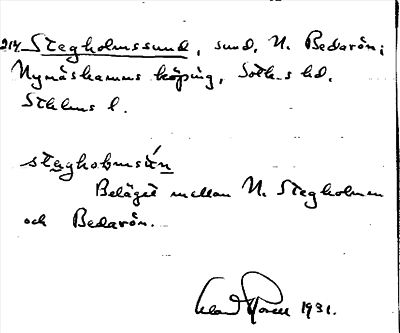 214 Stegholmssund, sund, N. Bedarön;
Nynäshamns köping, Soth-s hd.
Sthlms l.
stegholmsún
Beläget mellan N. Stegholmen
och Bedarön.
1931.